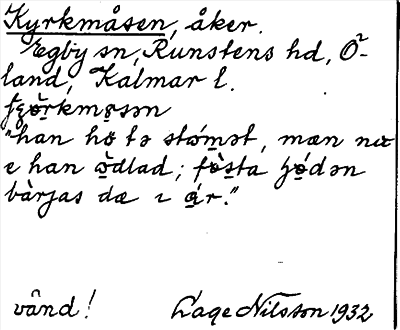 Kyrkmåsen, åker.
Egby sn, Runstens hd, Ö-
land, Kalmar l.
"han hö tə stómət, mæn nu
e han ödlad; fösta
bàrjas dæ ı ár."
vänd! Lage Nilsson 1932